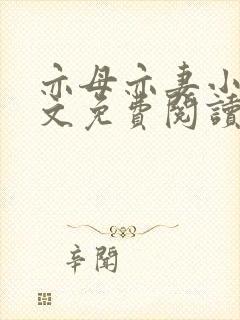 亦母亦妻小
文免費閱讀
辛聞